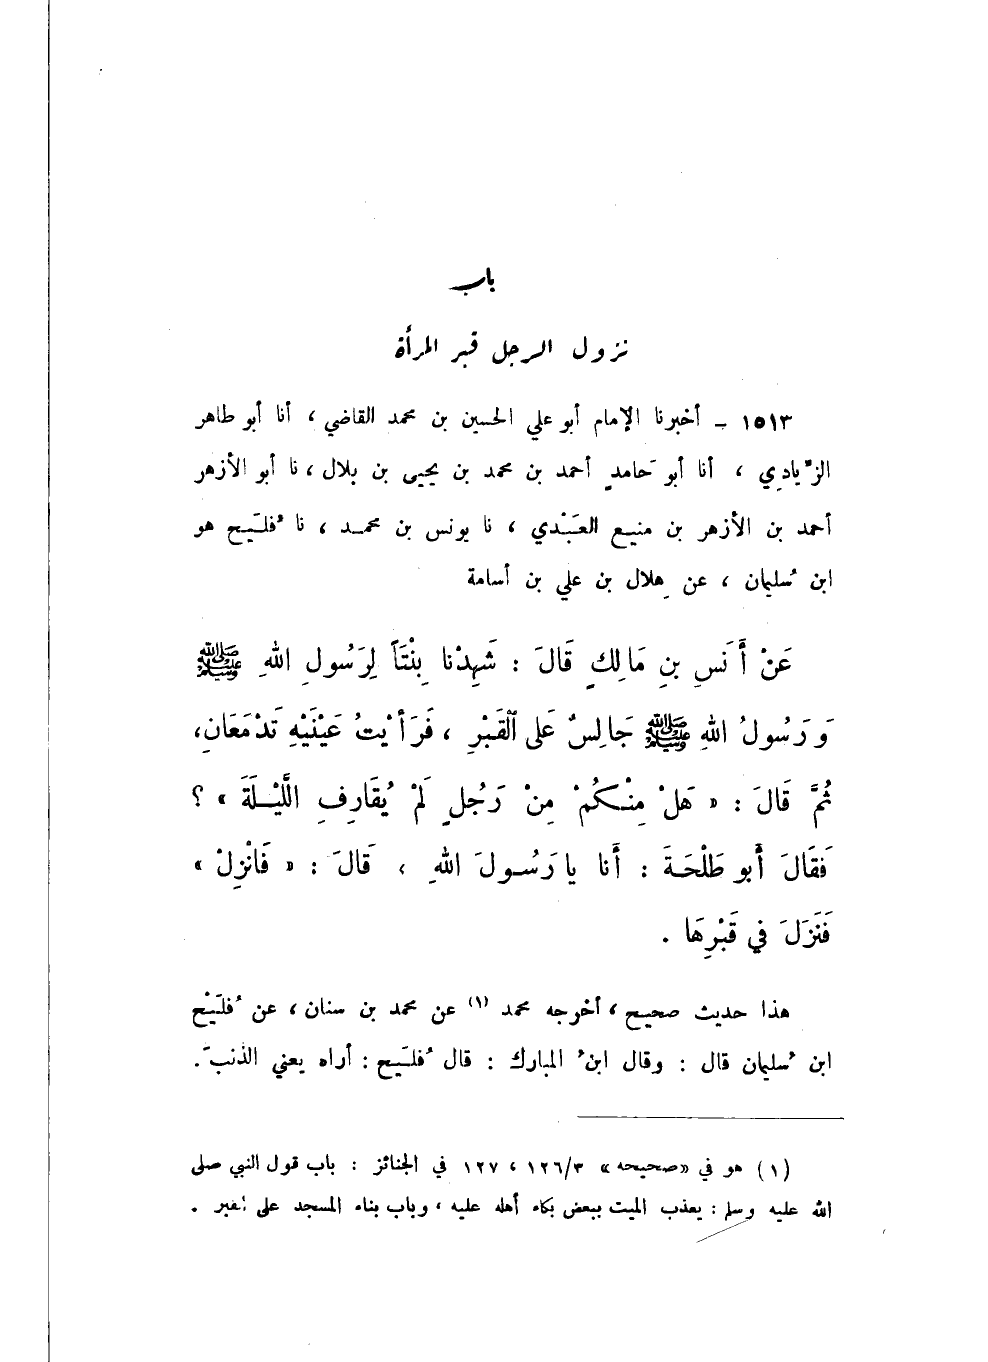 باب
نزول الرجل قبر المرأة
١٥١٣ ـ أخبرنا الإمام أبو علي الحسين بن محمد القاضي ، أنا أبو طاهر
الزّيادي ، أنا أبو حَامدٍ أحمد بن محمد بن يحيى بن بلال ، نا أبو الأزهر
أحمد بن الأزهر بن منيع العَبْدي ، نا يونس بن محمد ، نا فُليَح هو
ابن سُليمان ، عن هِلال بن علي بن أسامة
عَنْ أَنَسِ بنِ مَالِكٍ قَالَ : شَهِدْنا بِنْتَاً لِرَسُولِ اللهِ ﷺ
وَرَسُولُ اللهِ ﷺ جَالِسٌ عَلى ٱلْقَبْرِ ، فَرَأَيْتُ عَيْنَيْهِ تَدْمَعَانِ ،
ثُمَّ قَالَ : « هَلْ مِنْكُمْ مِنْ رَجُلٍ لَمْ يُقَارِفِ اللَّيْلَةَ » ؟
فَقَالَ أَبو طَلْحَةَ : أَنا يا رَسُولَ اللهِ ، قَالَ : « فَانْزِلْ »
فَنَزَلَ في قَبْرِهَا .
هذا حديث صحيح ، أخرجه محمد (١) عن محمد بن سنان ، عن فُلَيْح
ابن سُليمان قال : وقال ابنُ المبارك : قال فُليَح : أراه يعني الذنبَ .
(١) هو في «صحيحه» ١٢٦/٣ ، ١٢٧ في الجنائز : باب قول النبي صلى
الله عليه وسلم : يعذب الميت ببعض بكاء أهله عليه ، وباب بناء المسجد على القبر .